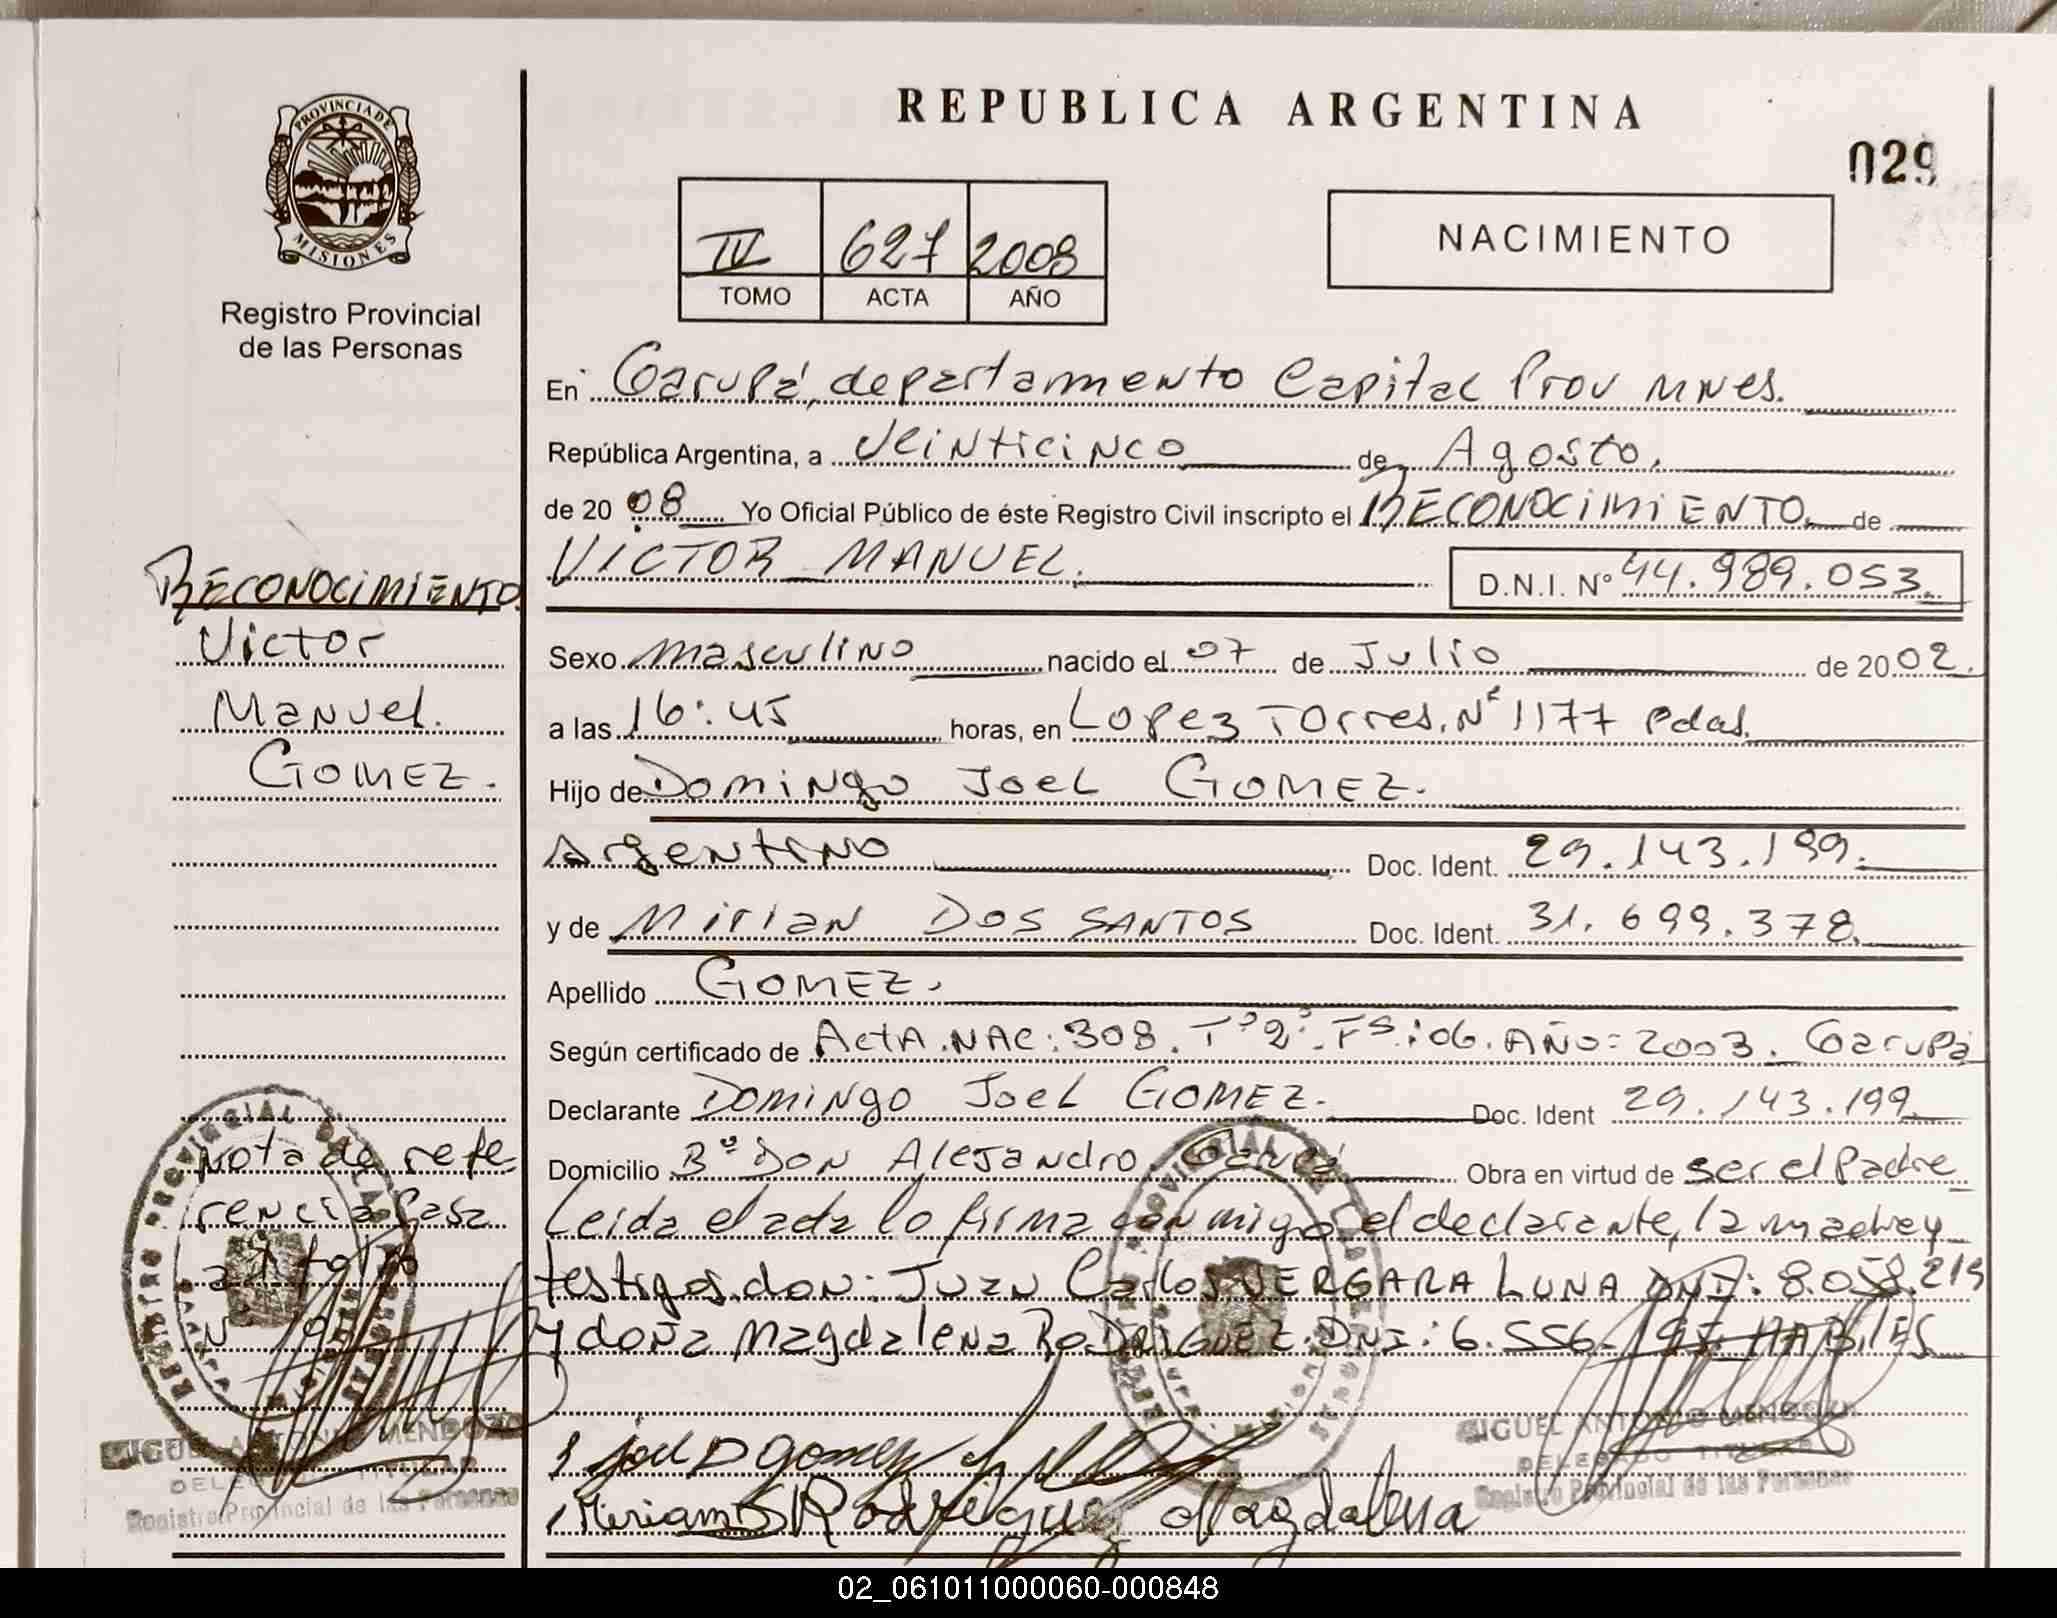 PROVINCIA DE
MISIONES
Registro Provincial
de las Personas
REPUBLICA ARGENTINA
029
IV 627 2008
TOMO ACTA AÑO
NACIMIENTO
En Garupá, departamento Capital Prov Mnes.
República Argentina, a Veinticinco de Agosto.
de 20 08 Yo Oficial Público de éste Registro Civil inscripto el RECONOCIMIENTO de
VICTOR MANUEL. D.N.I. N° 44.989.053.
Sexo masculino nacido el 07 de Julio de 2002.
a las 16:45 horas, en Lopez Torres. N° 1177 Pdas.
Hijo de Domingo Joel GOMEZ.
Argentino Doc. Ident. 29.143.199.
y de Mirian DOS SANTOS Doc. Ident. 31.699.378.
Apellido GOMEZ.
Según certificado de Acta.NAC: 308. T°2°. Fs: 06. AÑO=2003. Garupá
Declarante Domingo Joel GOMEZ. Doc. Ident 29.143.199.
Domicilio B° Don Alejandro. Garupá Obra en virtud de ser el Padre
Leida el acta lo firma conmigo el declarante, la madre y
testigos. don: Juan Carlos VERGARA LUNA DNI: 8.058.219
y doña Magdalena RODRIGUEZ. DNI: 6.556. HABILES
Joel D Gomez
Miriam DS Rodríguez Magdalena
RECONOCIMIENTO
Victor
Manuel.
GOMEZ.
Nota de refe-
rencia Pasa
al folio
N°
REGISTRO PROVINCIAL DE LAS PERSONAS
MIGUEL ANTONIO MENDOZA
DELEGADO TITULAR
Registro Provincial de las Personas
REGISTRO PROVINCIAL DE LAS PERSONAS
MIGUEL ANTONIO MENDOZA
DELEGADO TITULAR
Registro Provincial de las Personas
02_061011000060-000848